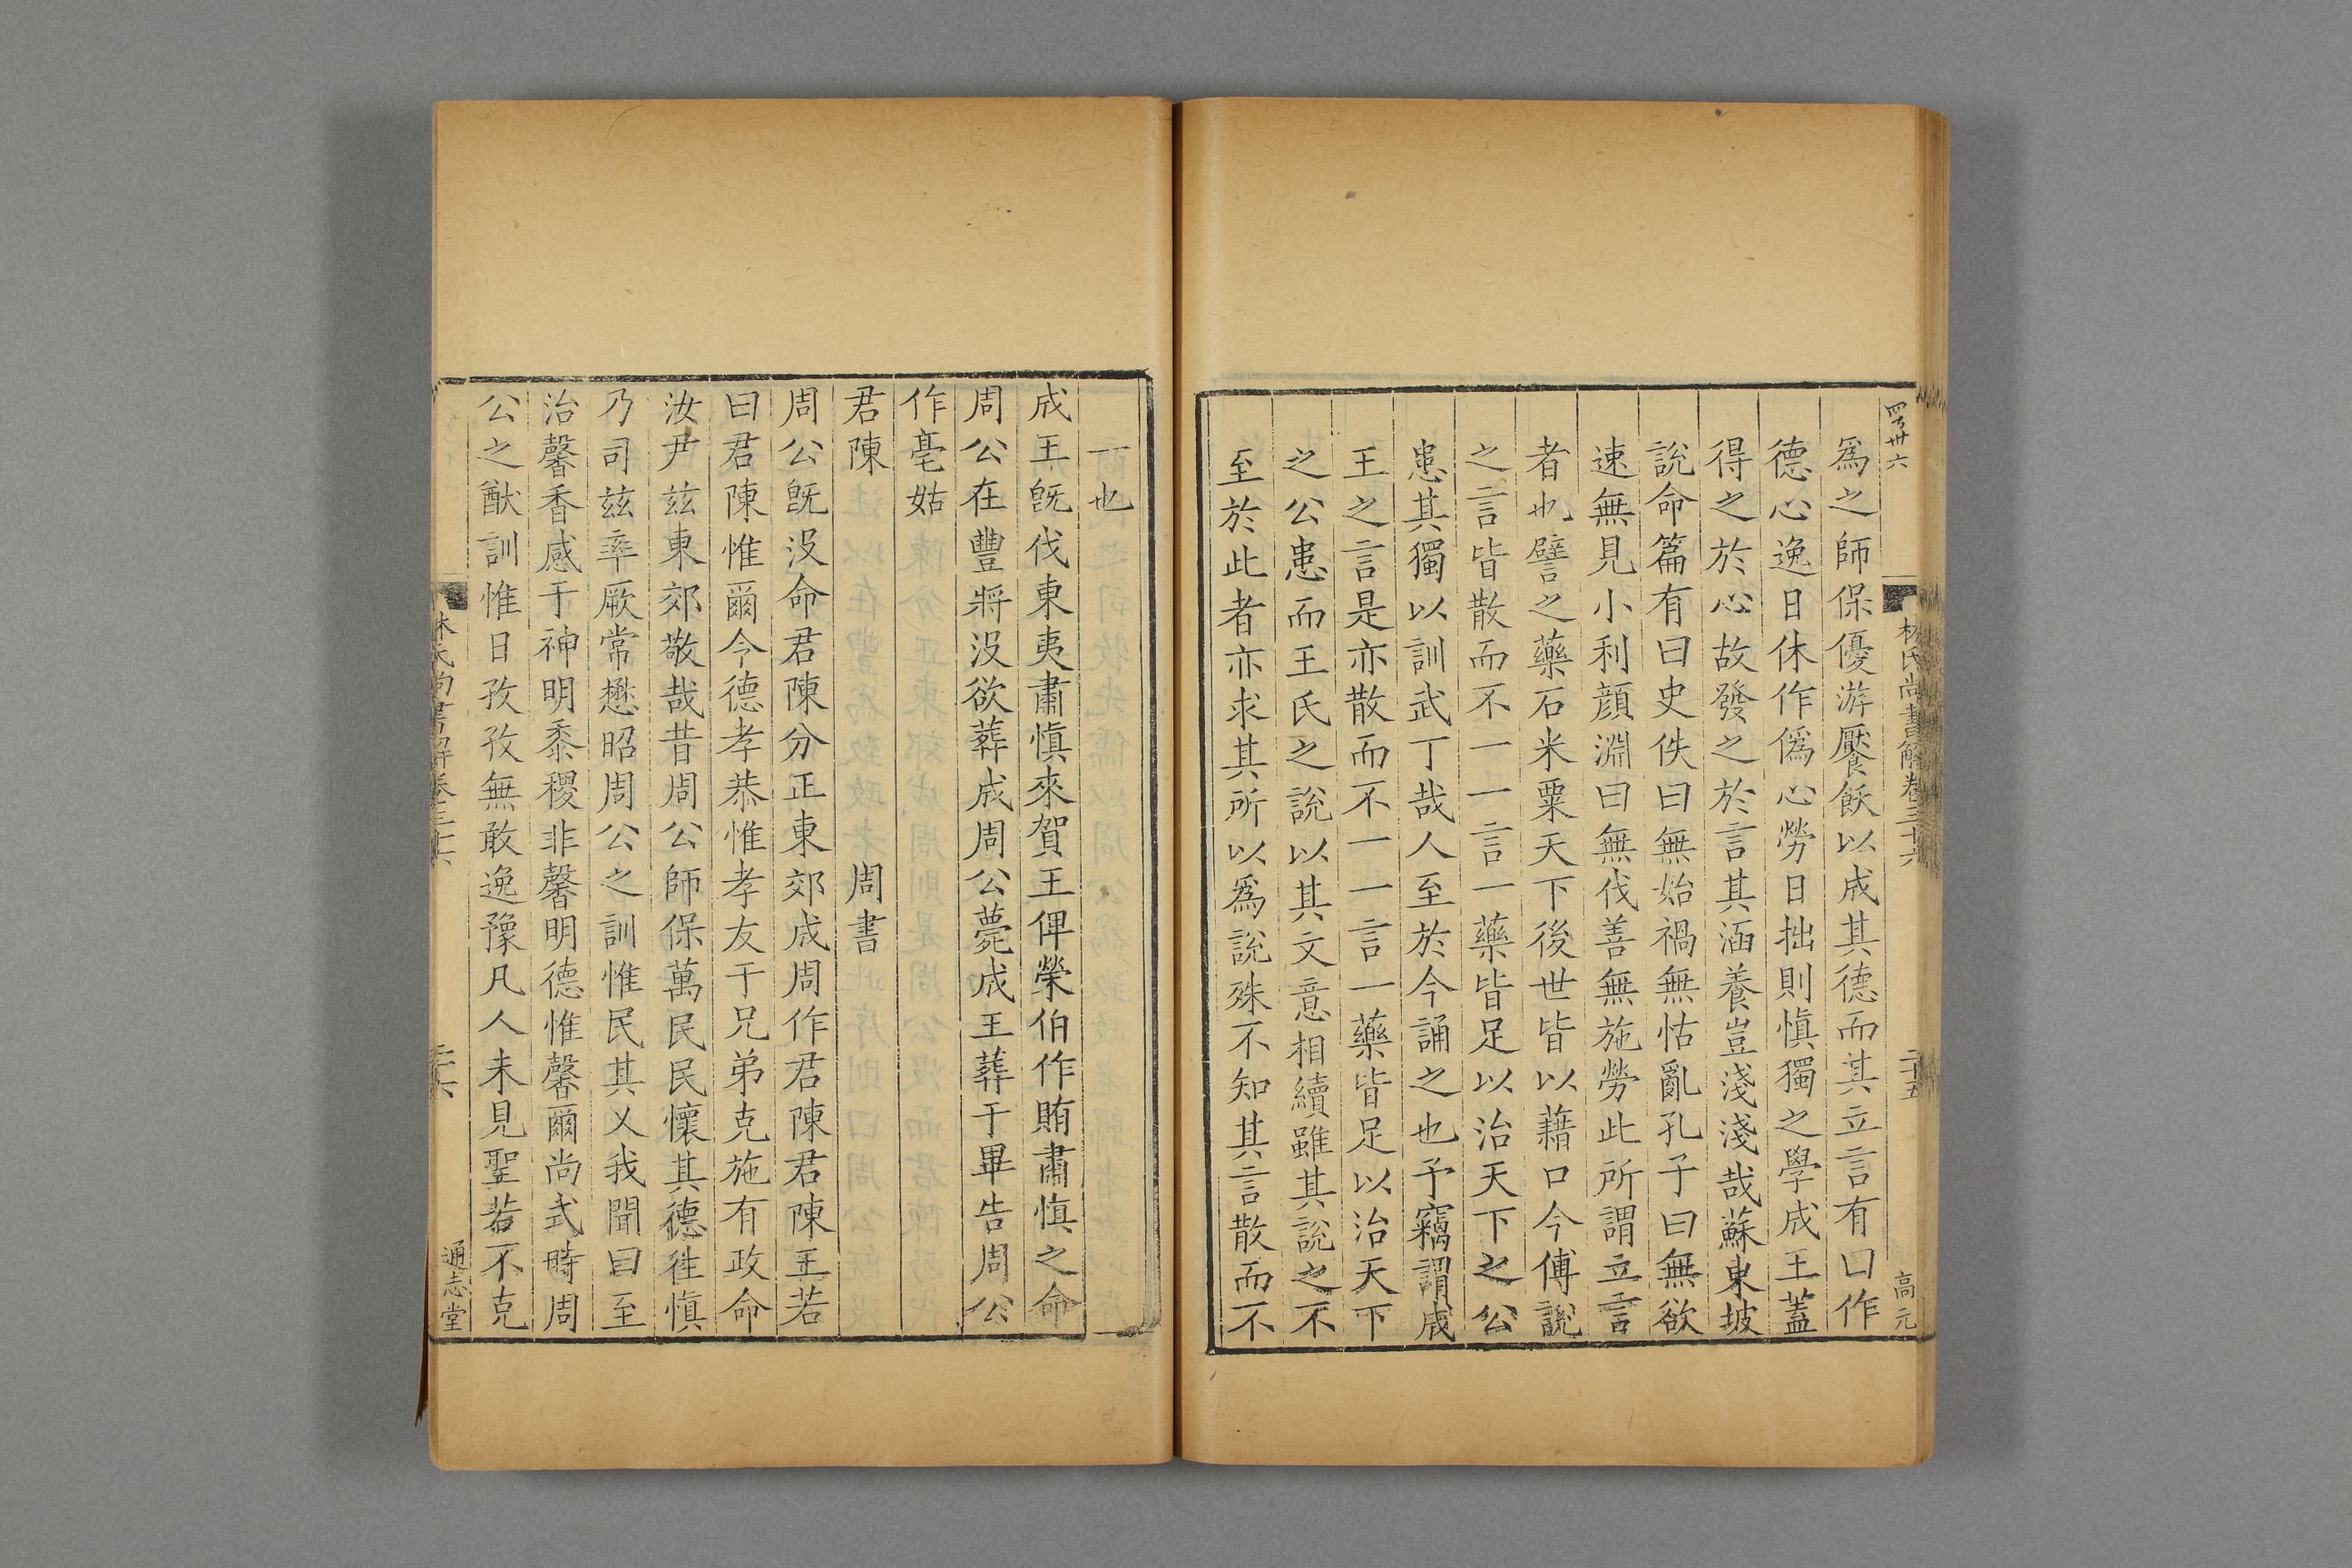 林氏尚書解卷三十六
二十五
高元
爲之師保優游饜飫以成其德而其立言有曰作
德心逸日休作偽心勞日拙則愼獨之學成王蓋
得之於心故發之於言其涵養豈淺淺哉蘇東坡
說命篇有曰史佚曰無始禍無怙亂孔子曰無欲
速無見小利顔淵曰無伐善無施勞此所謂立言
者也譬之藥石米粟天下後世皆以藉口今傅說
之言皆散而不一一言一藥皆足以治天下之公
患其獨以訓武丁哉人至於今誦之也予竊謂成
王之言是亦散而不一一言一藥皆足以治天下
之公患而王氏之說以其文意相續雖其說之不
至於此者亦求其所以爲說殊不知其言散而不
一也
成王旣伐東夷肅愼來賀王俾榮伯作賄肅愼之命
周公在豐將沒欲葬成周公薨成王葬于畢告周公
作亳姑
君陳 周書
周公旣沒命君陳分正東郊成周作君陳君陳王若
曰君陳惟爾令德孝恭惟孝友于兄弟克施有政命
汝尹兹東郊敬哉昔周公師保萬民民懷其德徃愼
乃司兹率厥常懋昭周公之訓惟民其乂我聞曰至
治馨香感于神明黍稷非馨明德惟馨爾尚式時周
公之猷訓惟日孜孜無敢逸豫凡人未見聖若不克
林氏尚書解卷三十六
通志堂